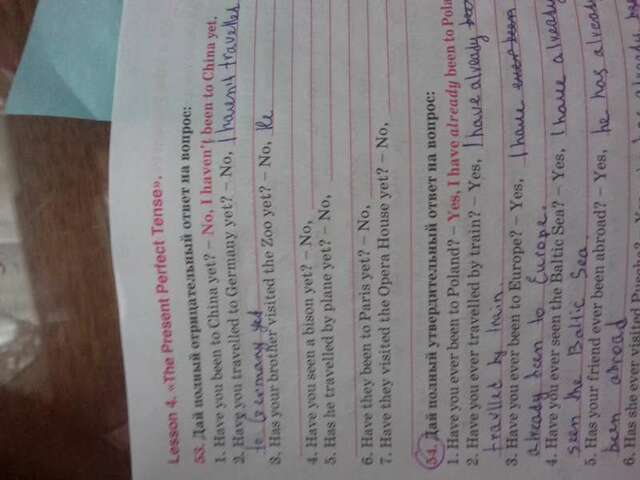 Lesson 4. «The Present Perfect Tense».
53. Дай полный отрицательный ответ на вопрос:
1. Have you been to China yet? – No, I haven't been to China yet.
2. Have you travelled to Germany yet? – No, I haven't travelled
to Germany yet
3. Has your brother visited the Zoo yet? – No, He
4. Have you seen a bison yet? – No,
5. Has he travelled by plane yet? – No,
6. Have they been to Paris yet? – No,
7. Have they visited the Opera House yet? – No,
54. Дай полный утвердительный ответ на вопрос:
1. Have you ever been to Poland? – Yes, I have already been to Pola
2. Have you ever travelled by train? – Yes, I have already
travlled by train.
3. Have you ever been to Europe? – Yes, I have ever been
already been to Europe.
4. Have you ever seen the Baltic Sea? – Yes, I have already
seen the Baltic Sea.
5. Has your friend ever been abroad? – Yes, he has alread
been abroad
6. Has she ever visited